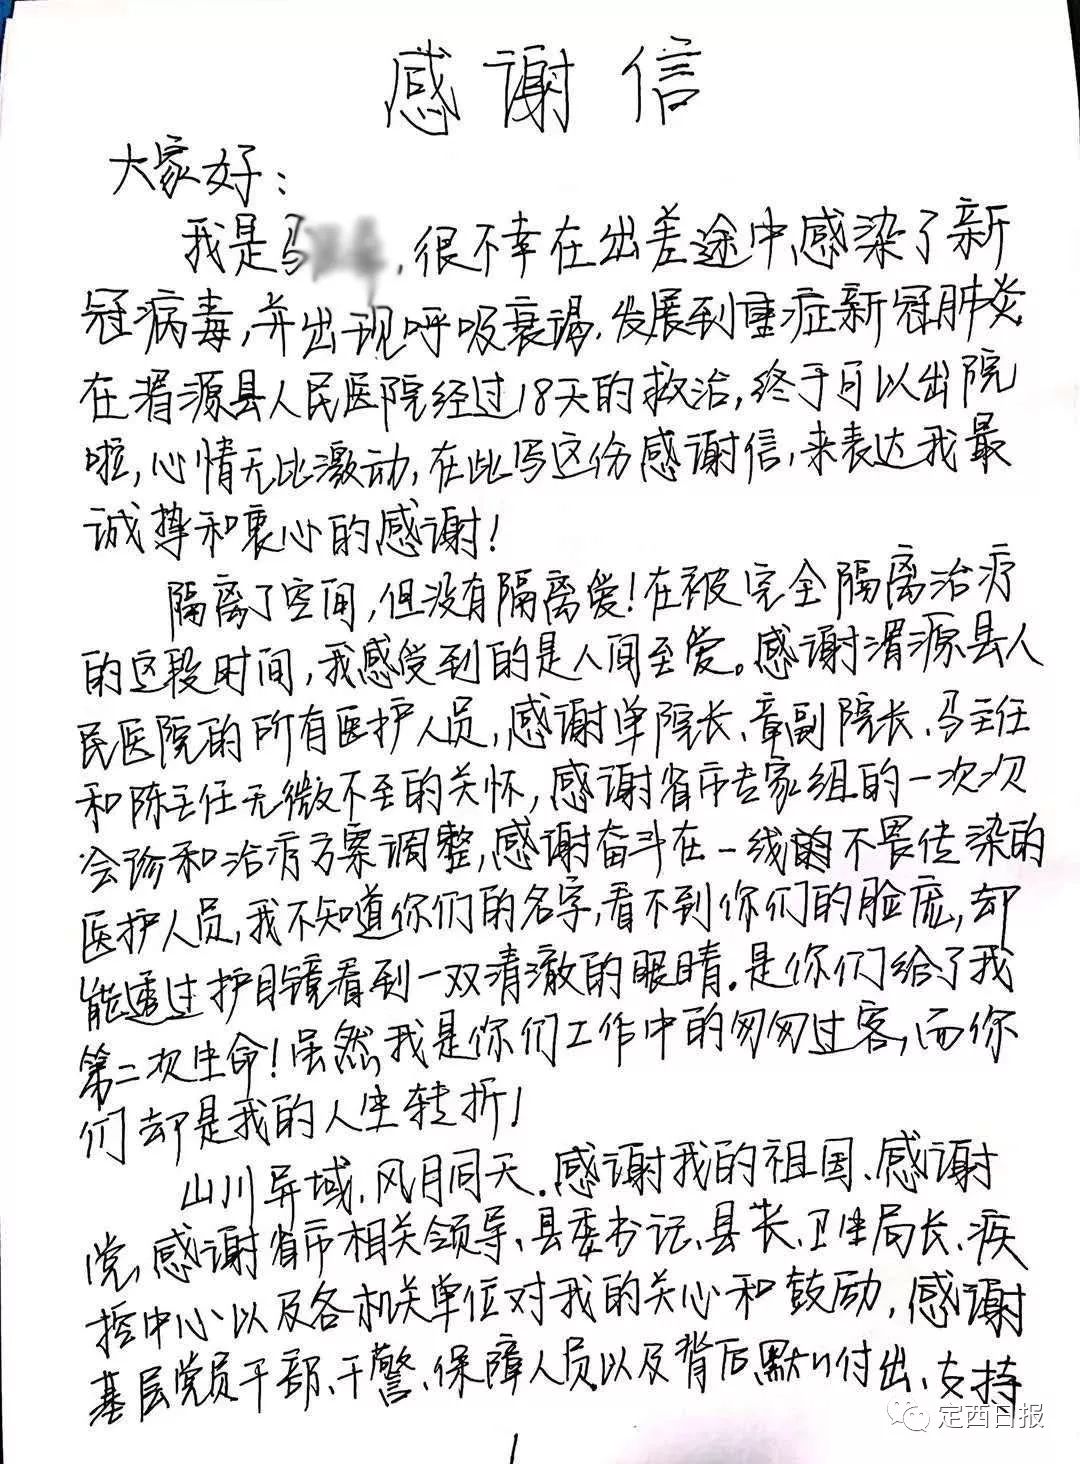 感谢信
大家好：
我是马，很不幸在出差途中感染了新
冠病毒，并出现呼吸衰竭，发展到重症新冠肺炎
在渭源县人民医院经过18天的救治，终于可以出院
啦，心情无比激动，在此写这份感谢信，来表达我最
诚挚和衷心的感谢！
隔离了空间，但没有隔离爱！在被完全隔离治疗
的这段时间，我感受到的是人间至爱。感谢渭源县人
民医院的所有医护人员，感谢单院长、章副院长、马主任
和陈主任无微不至的关怀，感谢省市专家组的一次次
会诊和治疗方案调整，感谢奋斗在一线的不畏传染的
医护人员，我不知道你们的名字，看不到你们的脸庞，却
能透过护目镜看到一双清澈的眼睛。是你们给了我
第二次生命！虽然我是你们工作中的匆匆过客，而你
们却是我的人生转折！
山川异域，风月同天。感谢我的祖国、感谢
党，感谢省市相关领导、县委书记、县长、卫生局长、疾
控中心以及各机关单位对我的关心和鼓励，感谢
基层党员干部、干警、保障人员以及背后默默付出、支持
1
定西日报